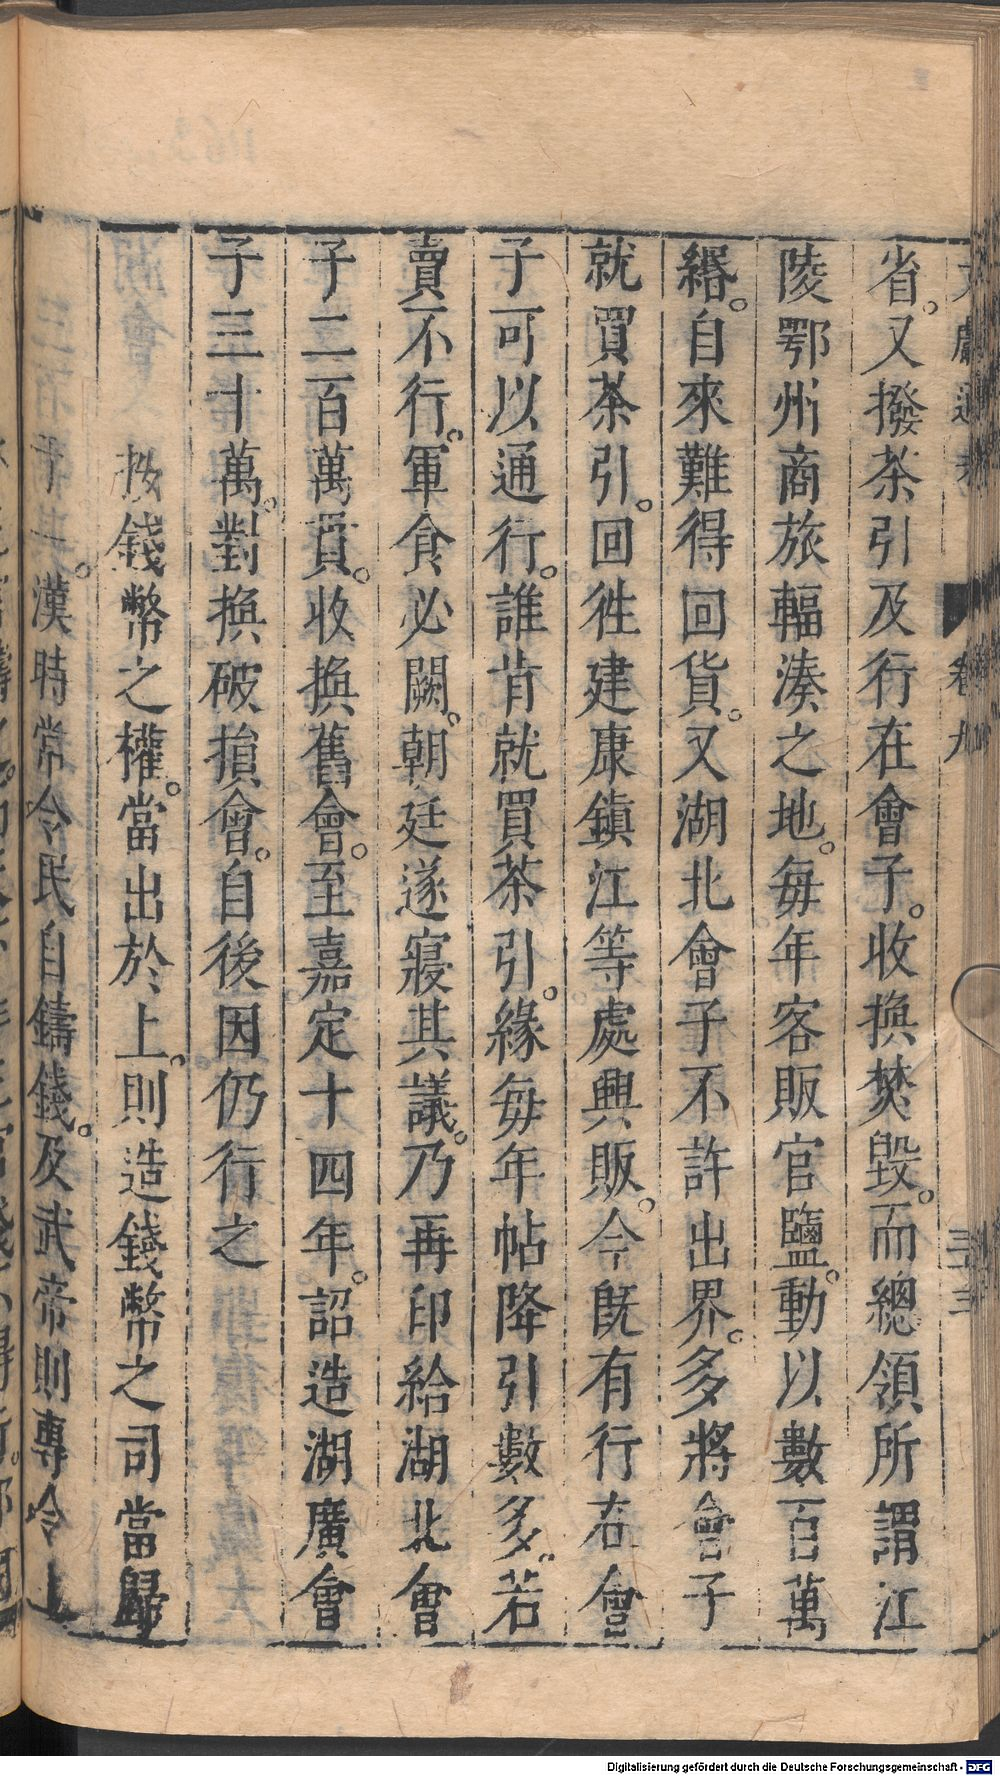 文獻通考 卷九 三三
省。又撥茶引及行在會子。收換焚毀。而總領所謂江
陵鄂州商旅輻湊之地。每年客販官鹽。動以數百萬
緡。自來難得回貨。又湖北會子不許出界。多將會子
就買茶引。回徃建康鎮江等處興販。今既有行在會
子可以通行。誰肯就買茶引。緣每年帖降引數多。若
賣不行。軍食必闕。朝廷遂寢其議。乃再印給湖北會
子二百萬貫。收換舊會。至嘉定十四年。詔造湖廣會
子三十萬。對換破損會。自後因仍行之
按錢幣之權。當出於上。則造錢幣之司當歸
漢時常令民自鑄錢。及武帝則專令上
Digitalisierung gefördert durch die Deutsche Forschungsgemeinschaft - DFG